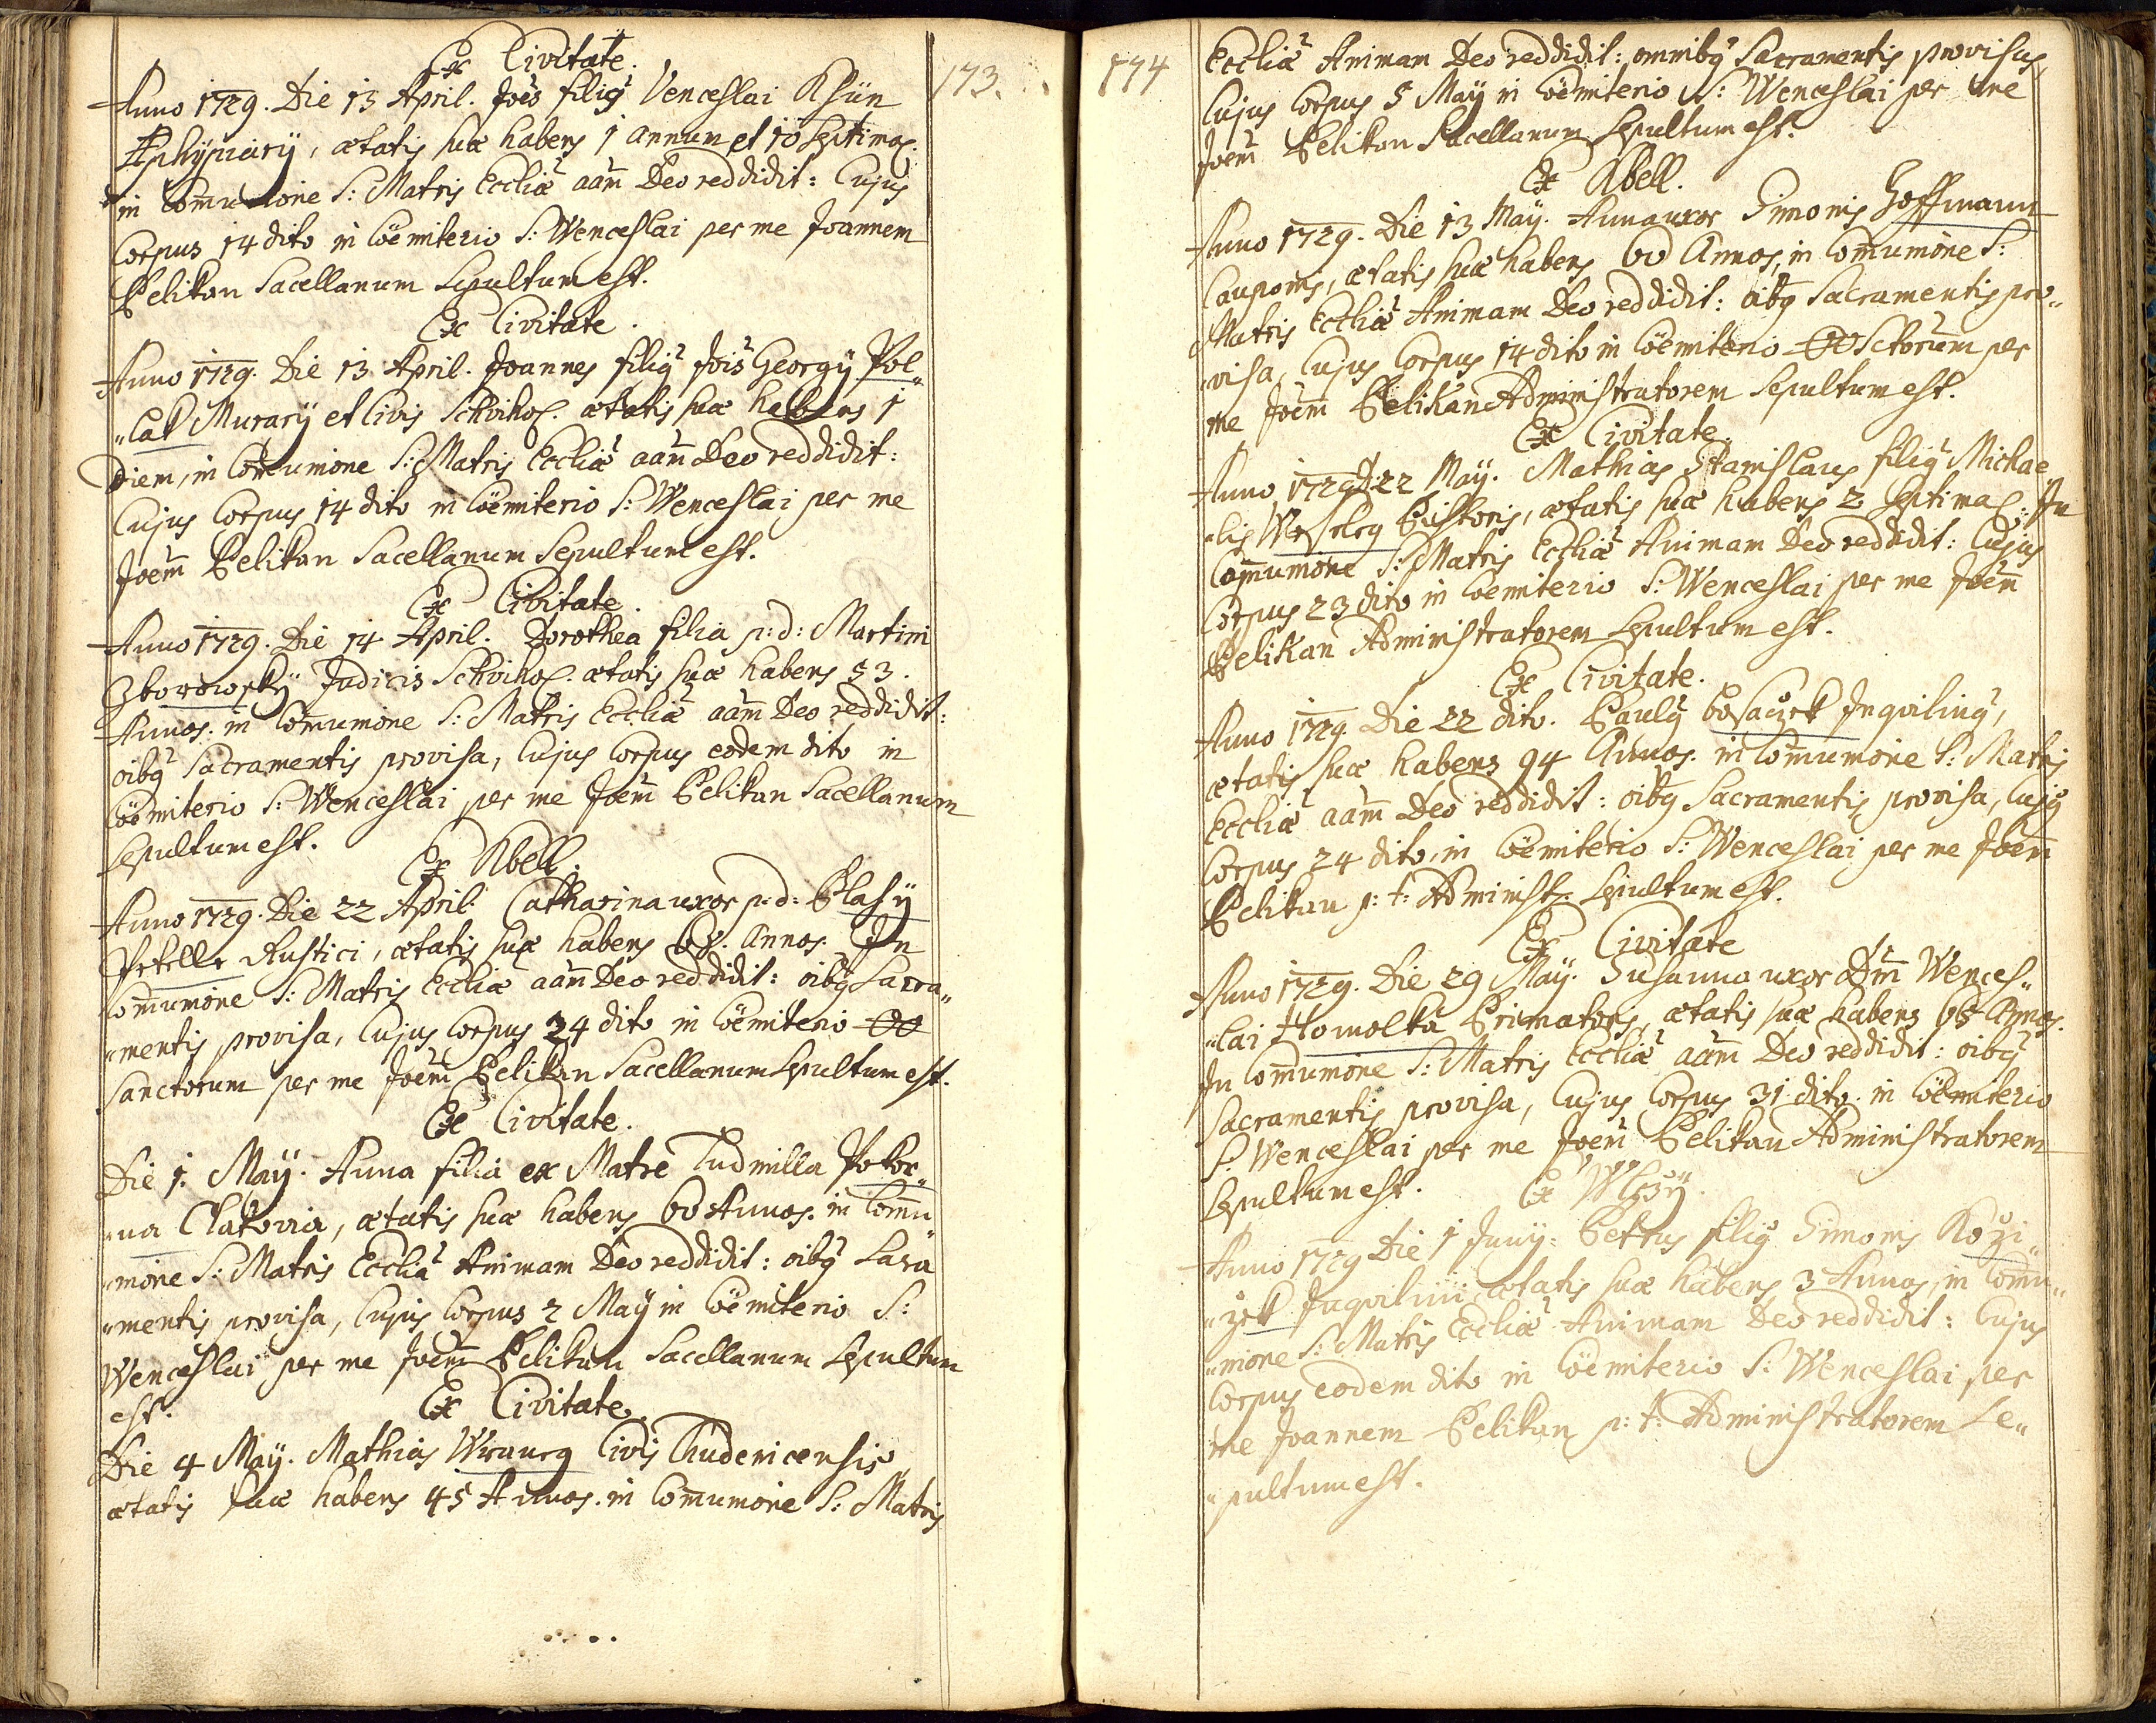 173.
Ex Civitate.
Anno 1729. Die 13 April. Joes filiꝰ Venceslai Khün
ætatis suæ habens 1 annum et 10 Septimas.
in Com̃unione S: Matris Eccliæ aãm Deo reddidit: Cujus
Corpus 14 dito in Cöemiterio S: Wenceslai per me Joannem
Pelikan Sacellanum Sepultum est.
Ex Civitate.
Anno 1729. Die 13 April. Joannes filiꝰ Jois Georgÿ Pol„
„cak Murarÿ et Civis Schviho[...]. ætatis suæ habens 1
Diem, in Com̃unione S: Matris Eccliæ aãm Deo reddidit:
Cujus Corpus 14 dito in Cöemiterio S: Wenceslai per me
Joem̃ Pelikan Sacellanum Sepultum est.
Ex Civitate.
Anno 1729. Die 14 April. Dorothea filia p: d: Martini
Zborowsky Judicis Schviho[...]. ætatis suæ habens 33.
Annos. in Com̃unione S: Matris Eccliæ aãm Deo reddidit:
oibꝰ Sacramentis provisa, Cujus Corpus eodem dito in
Cöemiterio S: Wenceslai per me Joem̃ Pelikan Sacellanum
Sepultum est.
Ex Kbell.
Anno 1729. Die 22 April. Catharina uxor p: d: Blasÿ
Rustici, ætatis suæ habens Annos. In
Com̃unione S: Matris Eccliæ aãm Deo reddidit: oibꝰ Sacra„
„mentis provisa, Cujus Corpus 24 dito in Cöemiterio OO
Sanctorum per me Joem̃ Pelikan Sacellanum Sepultum est.
Ex Civitate.
Die 1. May. Anna filia ex Matre Ludmilla Pokor„
„na Clatovia, ætatis suæ habens 60 Annos. in Com̃u„
„nione S: Matris Eccliæ Animam Deo reddidit: oibꝰ Sacra
„mentis provisa, Cujus Corpus 2 Maÿ in Cöemiterio S:
Wenceslai per me Joem̃ Pelikan Sacellanum Sepultum
est.
Ex Civitate.
Die 4 Maÿ. Mathias Civis
ætatis suæ habens 45 Annos. in Com̃unione S: Matris
174
Eccliæ Animam Deo reddidit: omnibꝰ Sacramentis provisus,
Cujus Corpus 5 Maÿ in Cöemiterio S: Wenceslai per me
Joem̃ Pelikan Sacellanum Sepultum est.
Ex Kbell.
Anno 1729. Die 13 May. Anna uxor Simonis Hoffmann
Cauponis, ætatis suæ habens 60 Annos, in Com̃unione S:
Matris Eccliæ Animam Deo reddidit: oibꝰ Sacramentis pro„
„visa, Cujus Corpus 14 dito in Cöemiterio OO Sctorum per
me Joem̃ Pelikan Administratorem Sepultum est.
Ex Civitate.
Anno 1729 D 22 Maÿ. Mathias Stanislaus filiꝰ Michae
„lis Pistoris, ætatis suæ habens 2 Septimas: In
Com̃unione S: Matris Eccliæ Animam Deo reddidit: Cujus
Corpus 23 dito in Coemiterio S: Wenceslai per me Joem̃
Pelikan Administratorem Sepultum est.
Ex Civitate.
Anno 1729. Die 22 dito. Paulꝰ Bosaczek Inquilinꝰ,
ætatis suæ habens 94 Annos. in Com̃unione S: Matris
Eccliæ aãm Deo reddidit: oibꝰ Sacramentis provisa, Cujꝰ
Corpus 24 dito, in Cöemiterio S: Wenceslai per me Joem̃
Pelikan p: t: Administ: Sepultum est.
Ex Civitate
Anno 1729. Die 29 Maÿ. Susanna uxor Dm̃ Wences„
„lai Homolka Primatoris, ætatis suæ habens 65 Annos.
In Com̃unione S: Matris Eccliæ aãm Deo reddidit: oibꝰ
Sacramentis provisa, Cujus Corpus 31 dito. in Cöemiterio
S: Wenceslai per me Joem̃ Pelikan Administratorem
Sepultum est.
Ex Wlczÿ.
Anno 1729 Die 1 Junÿ: Petrus filiꝰ Simonis Kozi„
„zek Inquilini, ætatis suæ habens 3 Annos, in Com̃u„
„nione S: Matris Eccliæ Animam Deo reddidit: Cujus
Corpus eodem dito in Cöemiterio S: Wenceslai per
me Joannem Pelikan p: t: Administratorem Se„
„pultum est.